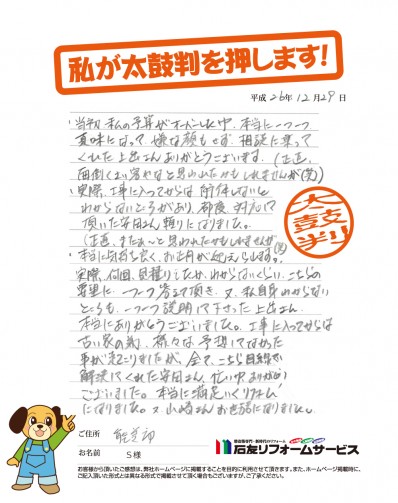 私が太鼓判を押します!
平成 26年 12月 29日
・当初、私の予算がオーバーした中、本当に一つ一つ
親味になって、嫌な顔もせず、相談に乗って
くれた上出さんありがとうございます。(正直、
面倒くさい客やなと思われたかもしれませんが(笑))
・実際、工事に入ってからは解体しないと
わからないところがあり、都度、対応して
頂いた安田さん、頼りになりました。
(正直、またまた〜と思われたかもしれませんが(笑))
・本当に気持ち良く、お正月が迎えられます。
実際、何回、見積りしたか、わからないくらい、こちらの
要望に、一つ一つ答えて頂き、又、私自身わからない
ところも、一つ一つ説明して下さった上出さん、
本当にありがとうございました。工事に入ってからは
古い家の為、様々な予想してなかった
事が起こりましたが、全て、こちら目線で
解決してくれた安田さん、忙い中ありがとう
ございました。本当に満足いくリフォーム
になりました。又、小崎さんお世話になりました。
太鼓判
ご住所 能美郡
お名前 S様
増改築専門・新時代のリフォーム
石友リフォームサービス
お客様から頂いたご感想は、弊社ホームページに掲載することを目的に利用させて頂きます。また、ホームページ掲載時に、
ご記入頂いた形式とは異なる形式で掲載させて頂く場合もございますが、ご了承ください。